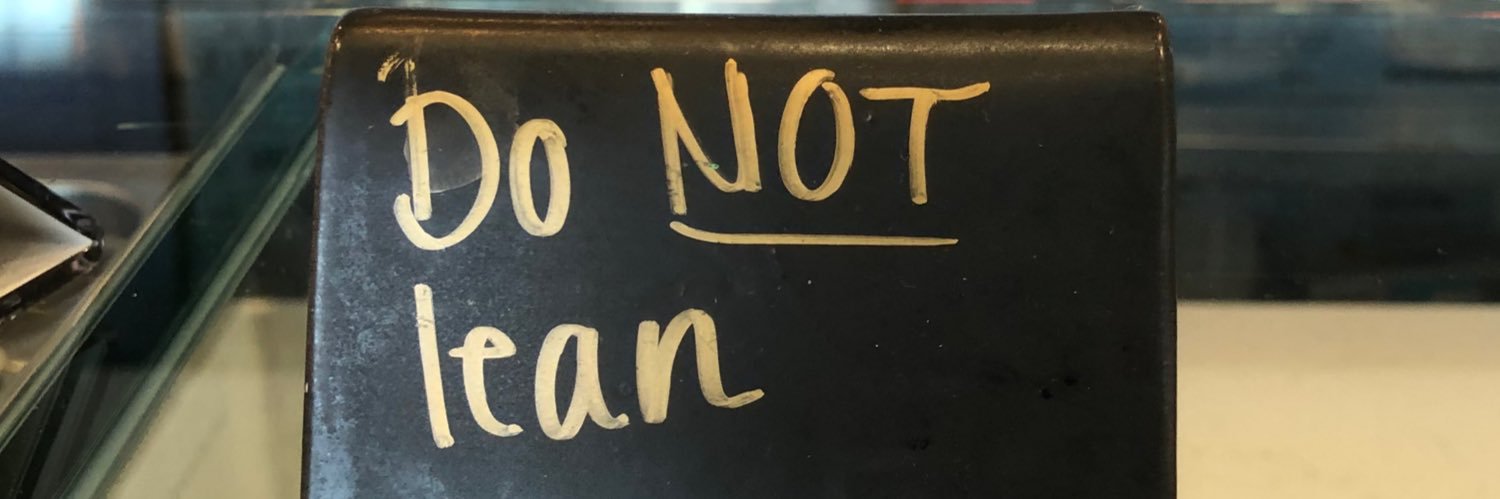 Do NOT
lean